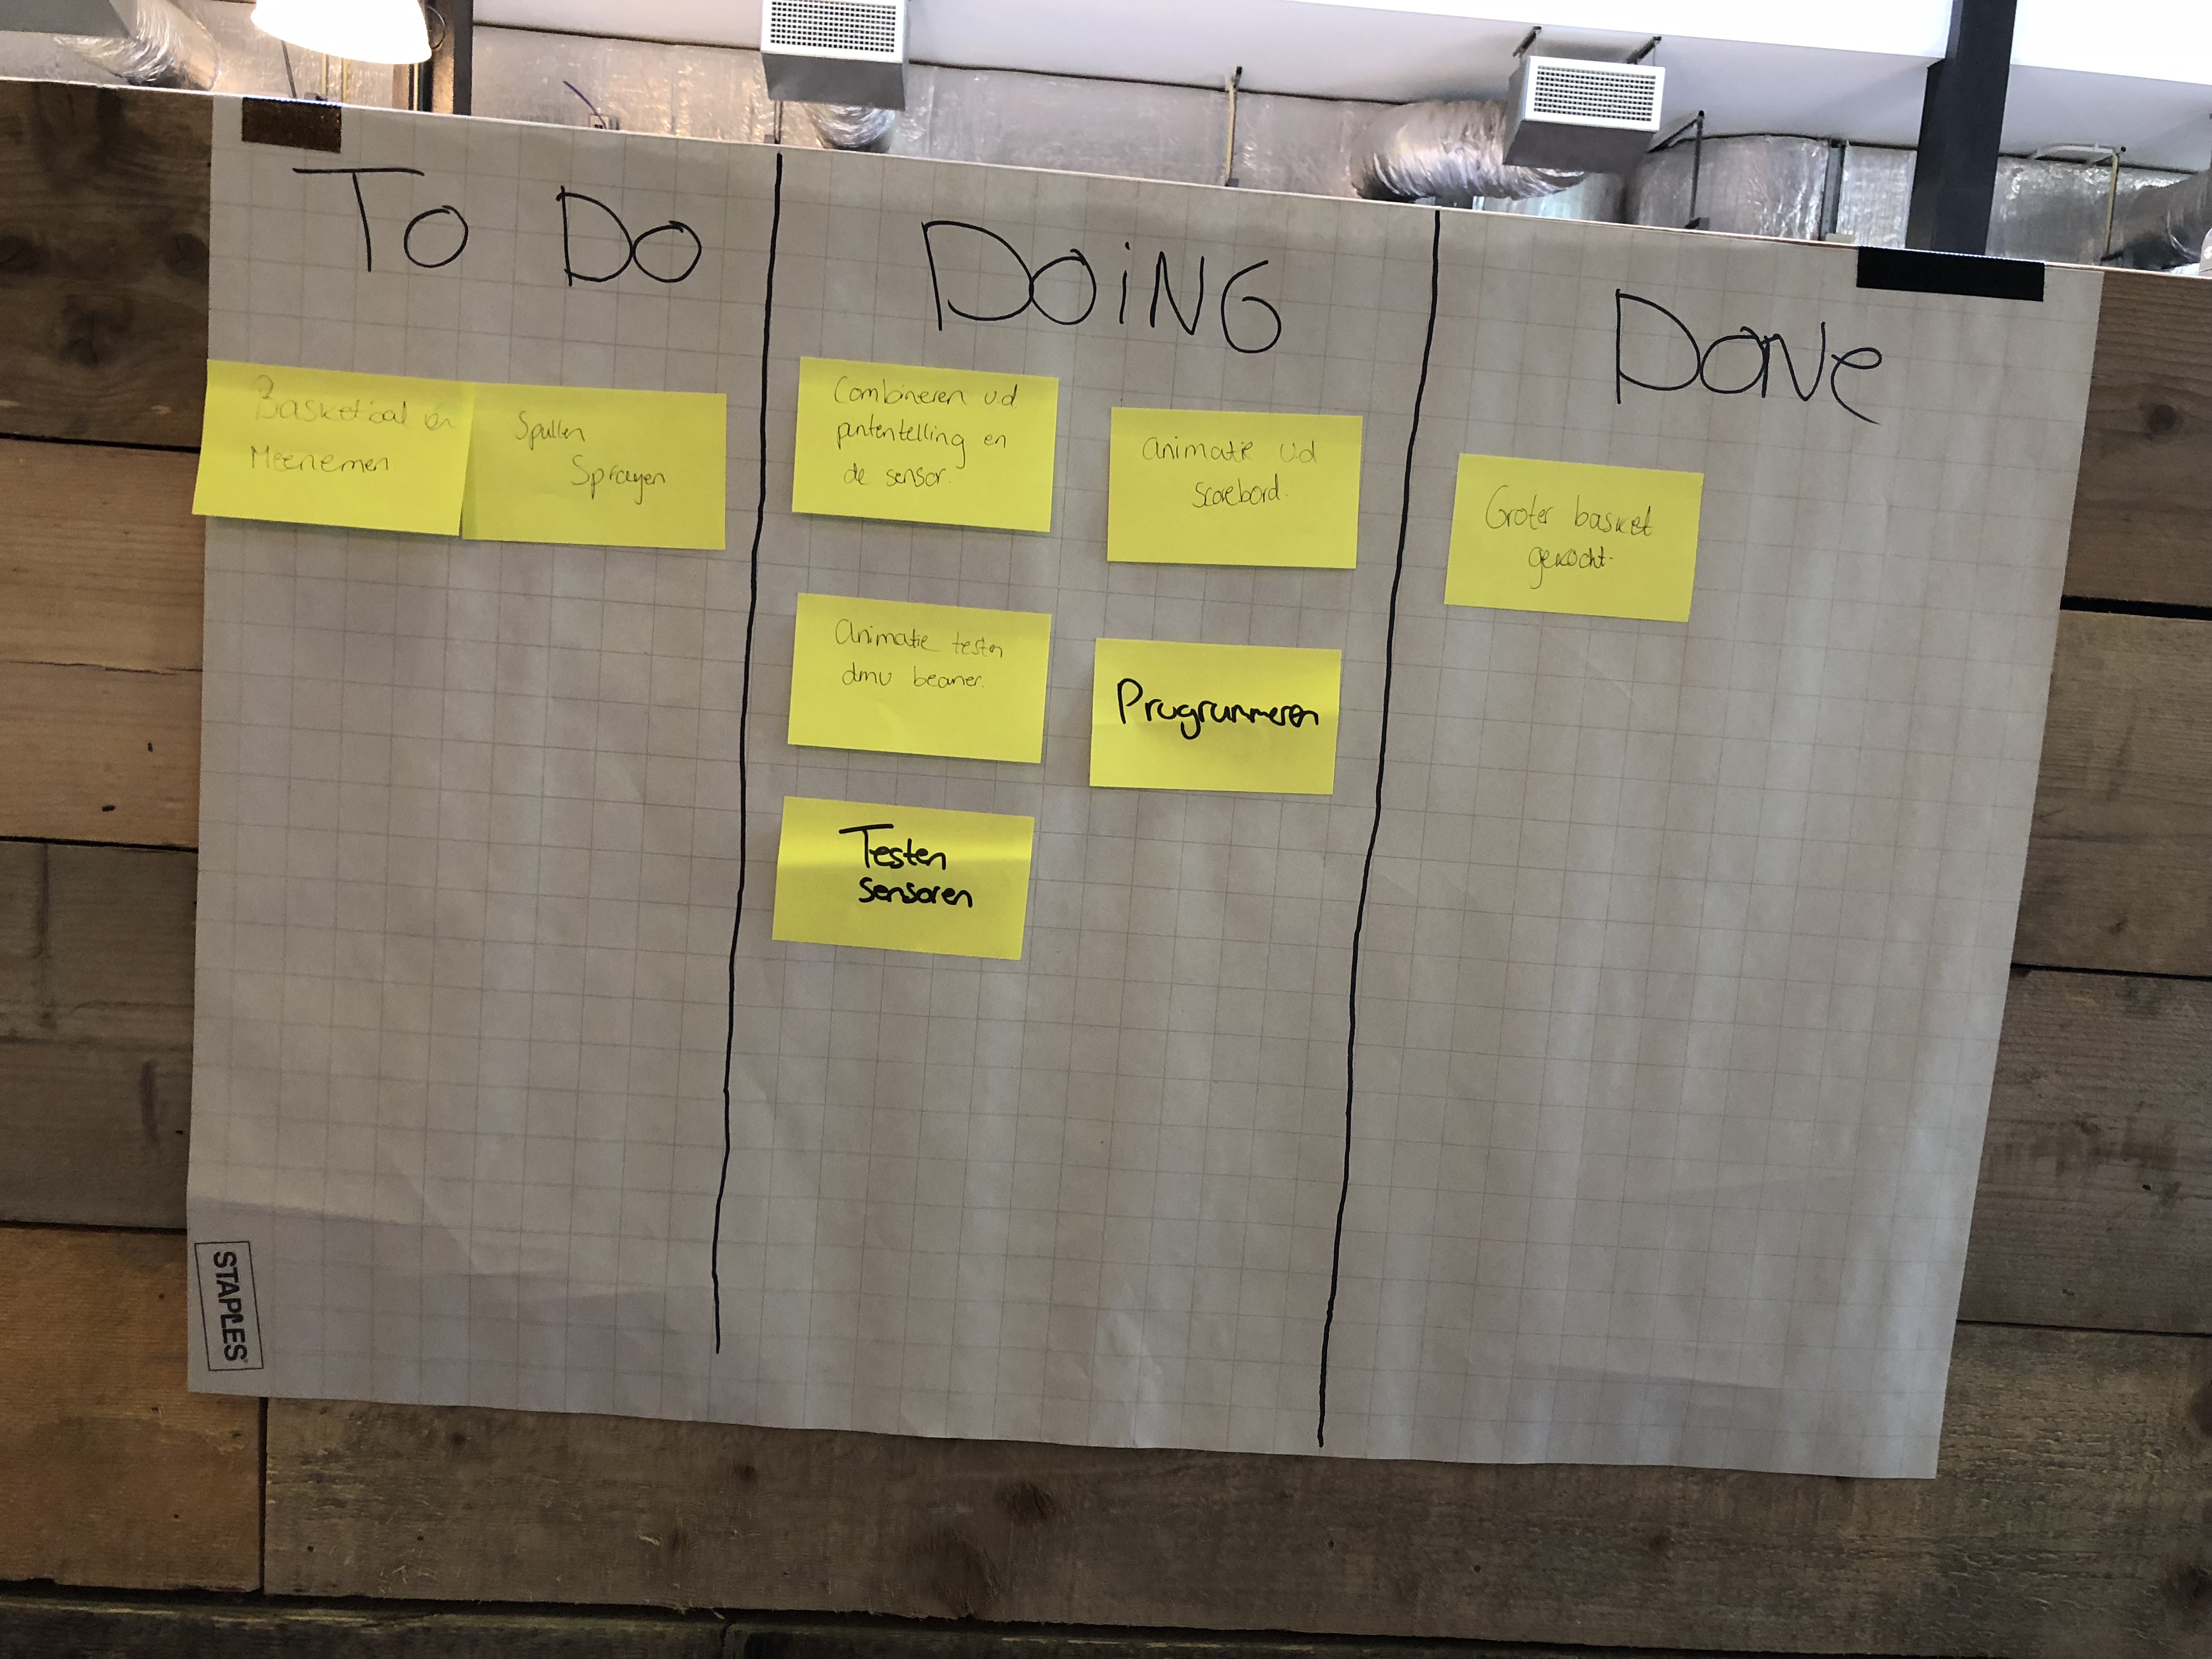 To Do
Basketbal en
Meenemen
Spullen
Sprayen
DOiNG
Combineren v.d.
puntentelling en
de sensor.
animatie v.d
scorebord.
Animatie testen
dmv beamer.
Programmeren
Testen
sensoren
DONe
Groter basket
gekocht.
STAPLES